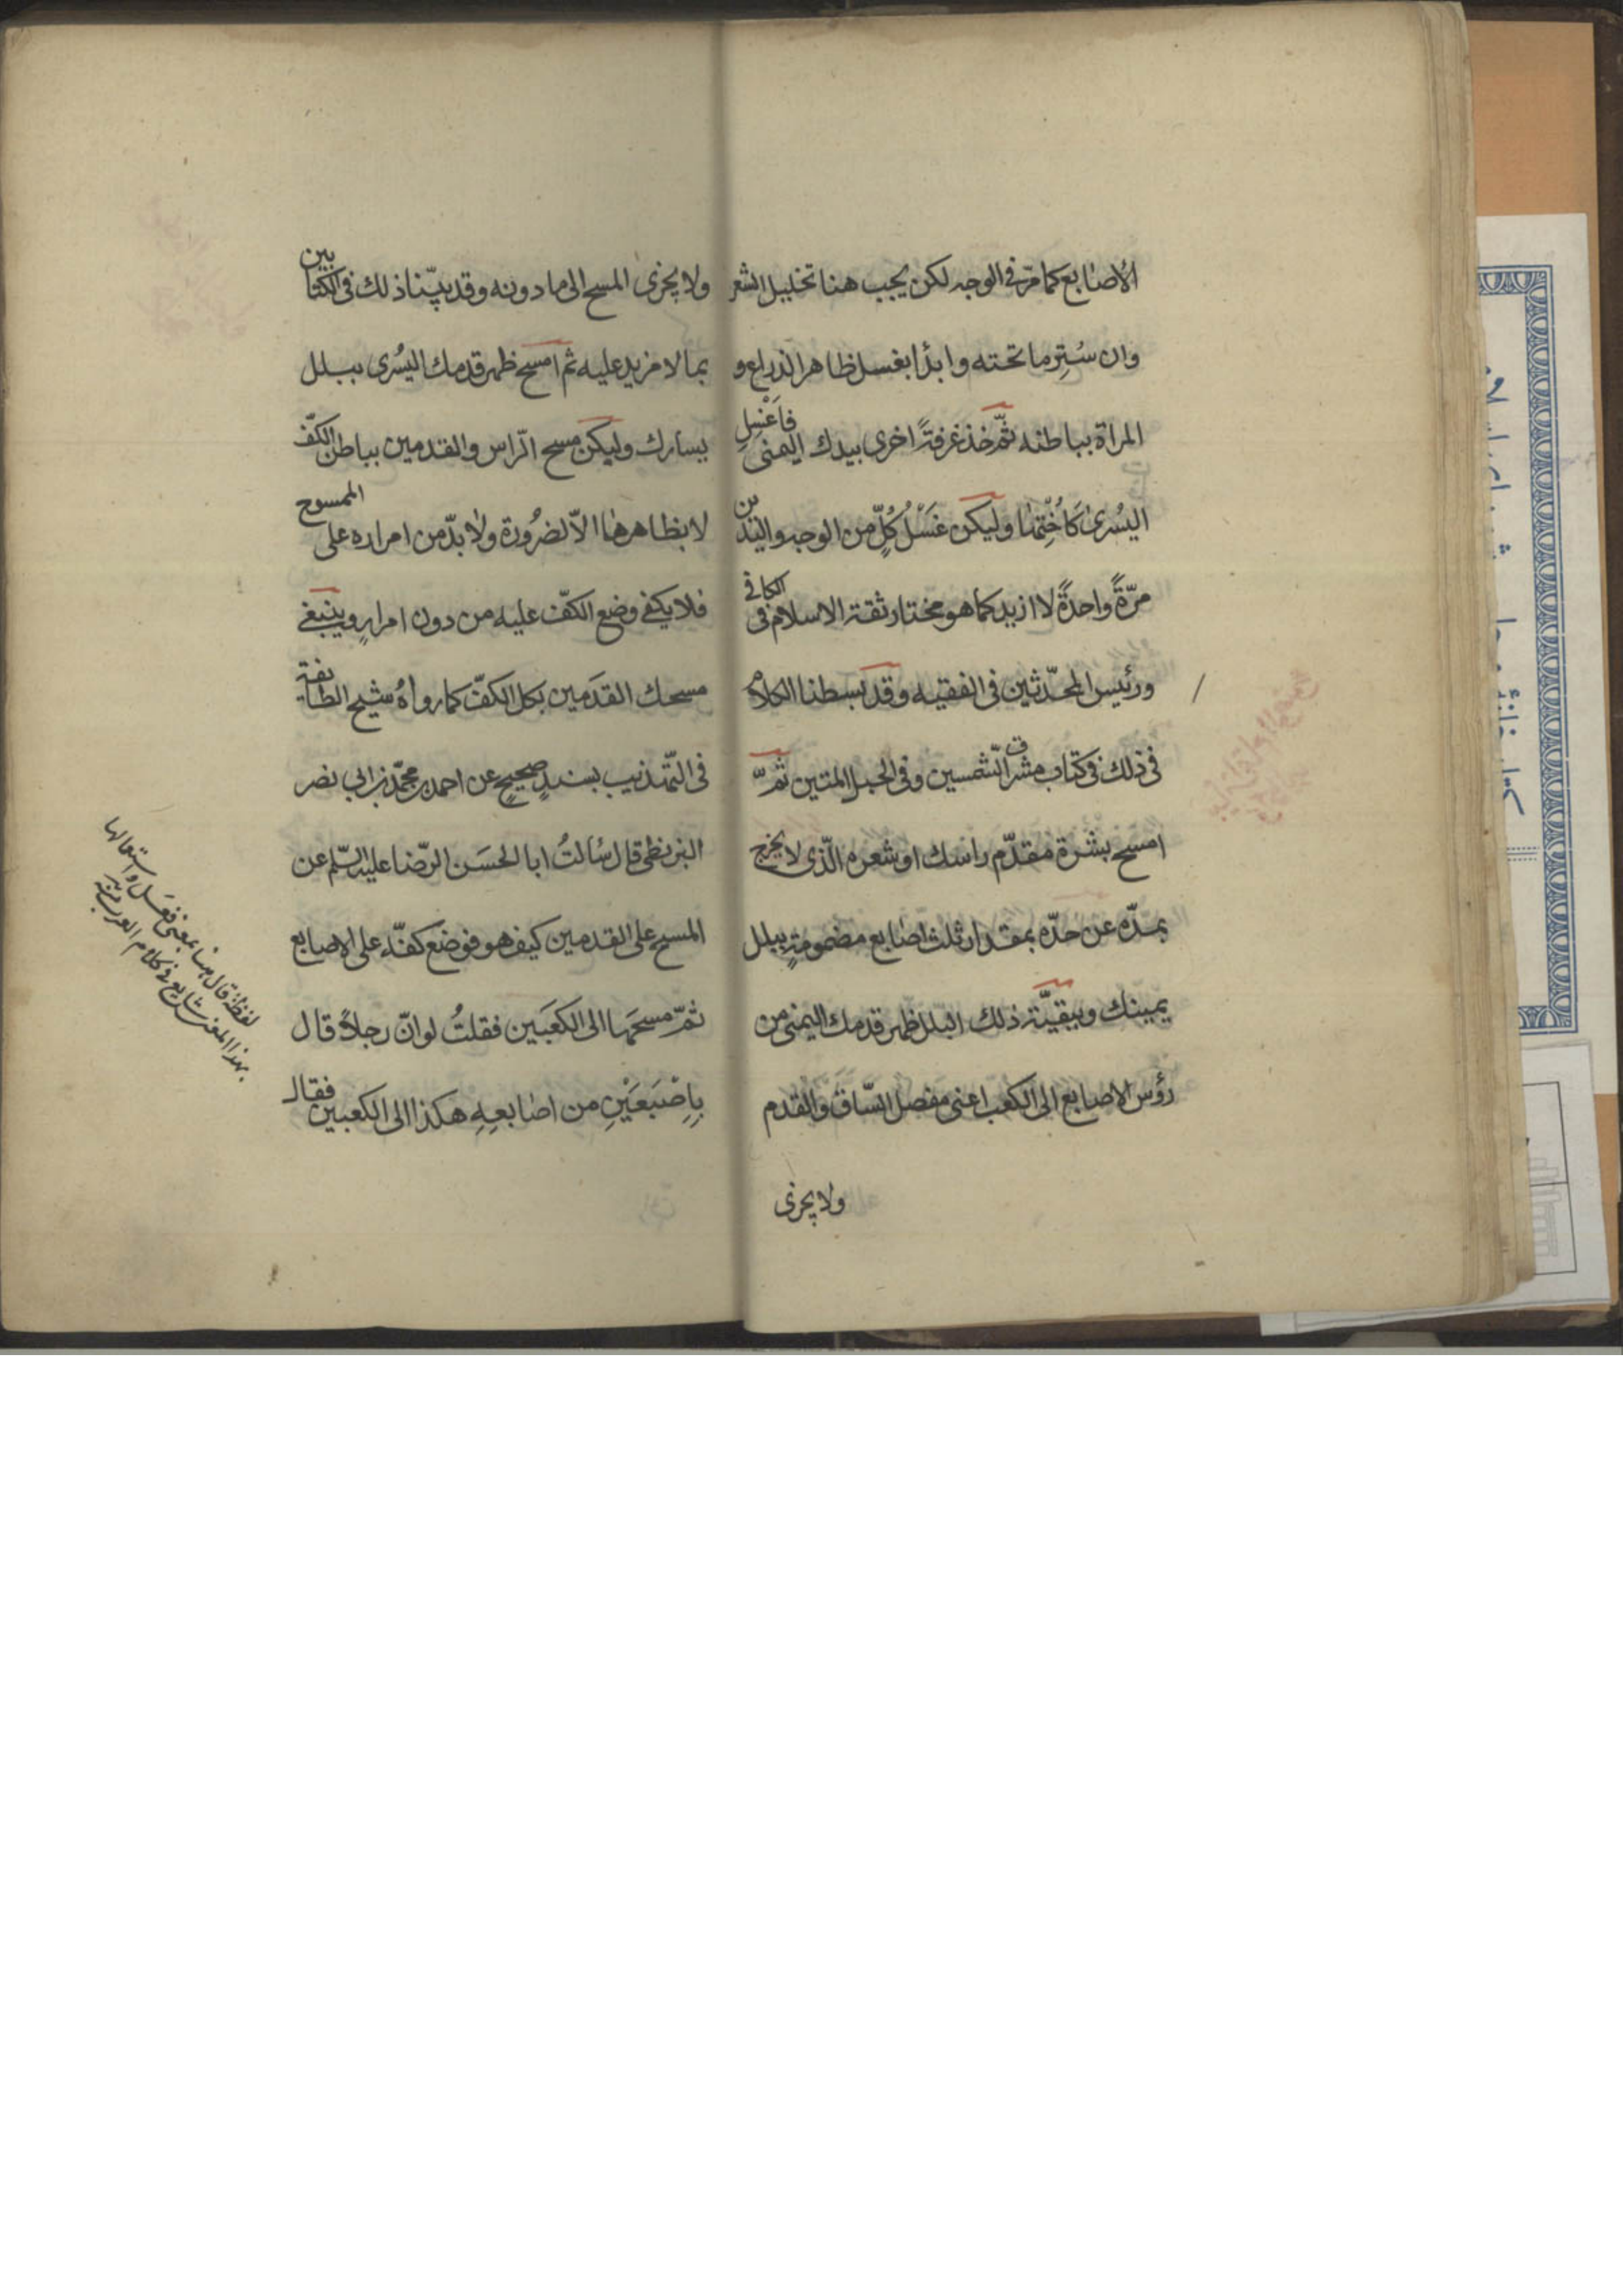 الأصابع كما مرّ في الوجه لكن يجب هنا تخليل الشعر
وان ستر ما تحته وابدأ بغسل ظاهر الذراع و
المراة بباطنه ثمّ خذ غرفةً اخرى بيدك اليمنى فاغسل
اليسرى كاُختها وليكن غَسْلُ كُلٍّ من الوجه واليدين
مرّةً واحدةً لا ازيد كما هو مختار ثقة الاسلام في الكافي
ورئيس المحدّثين في الفقيه وقد بسطنا الكلام
في ذلك في كتاب مشرق الشّمسين وفي الحبل المتين ثمّ
امسح بشرة مقدّم راسك او شعره الّذى لا يخرج
بمدّه عن حدّه بمقدار ثلث اصابع مضمومةٍ ببلل
يمينك وببقيّة ذلك البلل ظهر قدمك اليمنى من
رؤس الاصابع الى الكعب اعنى مفصل السّاق والقدم
ولا يجزى
ولا يجزى المسح الى ما دونه وقد بيّنا ذلك في الكتابين
بما لا مزيد عليه ثم امسح ظهر قدمك اليُسرى ببلل
يسارك وليكن مسح الرّاس والقدمين بباطن الكفّ
لا بظاهرها الاّ لضرُورة ولا بدّ من امراره على الممسوح
فلا يكفى وضع الكفّ عليه من دون امرارٍ وينبغى
مسحك القدَمين بكل الكفّ كما رواهُ شيخ الطائفة
في التّهذيب بسندٍ صحيحٍ عن احمد بن محمّد بن ابي نصر
البزنطى قال سُالتُ ابا الحسَن الرّضا عليه السّلم عن
المسح على القدمين كيف هو فوضع كفّه على الاصابع
ثمّ مسحَها الى الكعبَين فقلتُ لو انّ رجلاً قال
بِاِصْبَعَيْنِ من اصابعِهِ هكذا الى الكعبين فقال
لفظة قال هنا بمعنى فعَل واستعمالها
بهذا المعنى شايع في كلام العرب